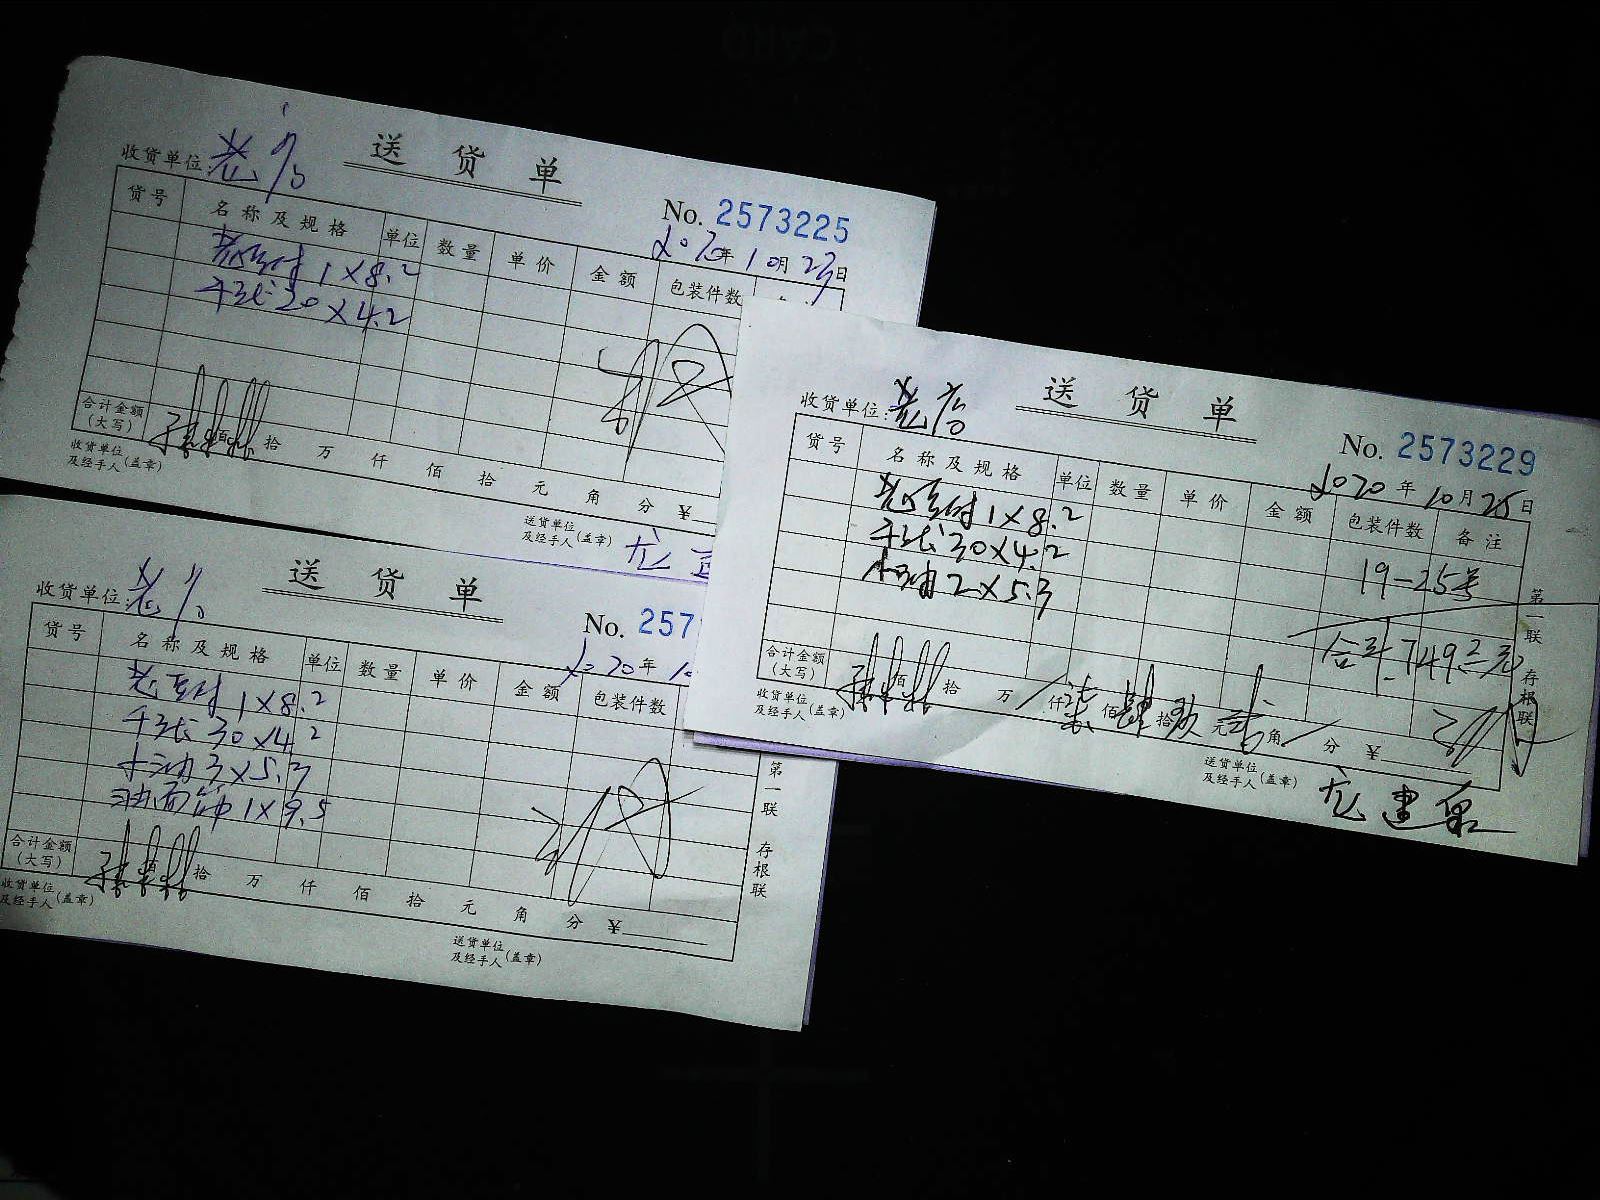 送货单
收货单位:
No. 2573225
2020年10月23日
货号 名称及规格 单位 数量 单价 金额 包装件数
1×8.2
千张20×4.2
合计金额(大写) 佰 拾 万 仟 佰 拾 元 角 分 ¥
收货单位及经手人(盖章)
送货单位及经手人(盖章)
送货单
收货单位:
No. 257
2020年10
货号 名称及规格 单位 数量 单价 金额 包装件数
1×8.2
千张30×4.2
3×5.3
油面筋1×9.5
合计金额(大写) 佰 拾 万 仟 佰 拾 元 角 分 ¥
收货单位及经手人(盖章)
送货单位及经手人(盖章)
第一联 存根联
送货单
收货单位:
No. 2573229
2020年10月25日
货号 名称及规格 单位 数量 单价 金额 包装件数 备注
1×8.2
千张30×4.2
2×5.3
19-25号
合计:749.2元
合计金额(大写) 佰 拾 万 仟 柒 佰 肆 拾 玖 元 贰 角 分 ¥
收货单位及经手人(盖章)
送货单位及经手人(盖章)
第一联 存根联